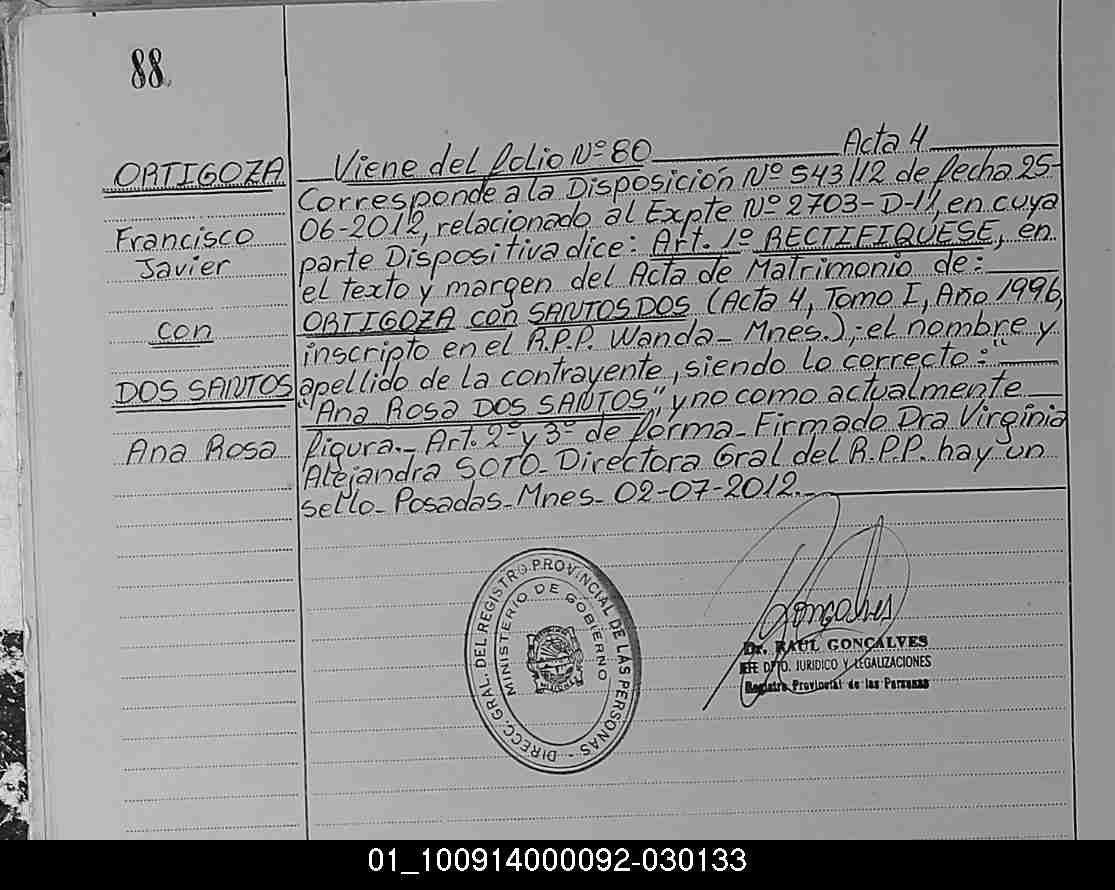 88
ORTIGOZA
Francisco
Javier
con
DOS SANTOS
Ana Rosa
Viene del folio Nº 80 Acta 4
Corresponde a la Disposición Nº 543/12 de fecha 25-
06-2012, relacionado al Expte Nº 2703-D-11, en cuya
parte Dispositiva dice: Art. 1º RECTIFIQUESE, en
el texto y margen del Acta de Matrimonio de:
ORTIGOZA con SANTOS DOS (Acta 4, Tomo I, Año 1996,
inscripto en el R.P.P. Wanda_ Mnes.); el nombre y
apellido de la contrayente, siendo lo correcto:"
"Ana Rosa DOS SANTOS", y no como actualmente
figura._ Art. 2º y 3º de forma_ Firmado Dra Virginia
Alejandra SOTO_ Directora Gral del R.P.P. hay un
sello_ Posadas_ Mnes_ 02-07-2012._
DIRECC. GRAL. DEL REGISTRO PROVINCIAL DE LAS PERSONAS -
MINISTERIO DE GOBIERNO
Goncalves
Dr. RAUL GONCALVES
JEFE DPTO. JURIDICO Y LEGALIZACIONES
Registro Provincial de las Personas
01_100914000092-030133